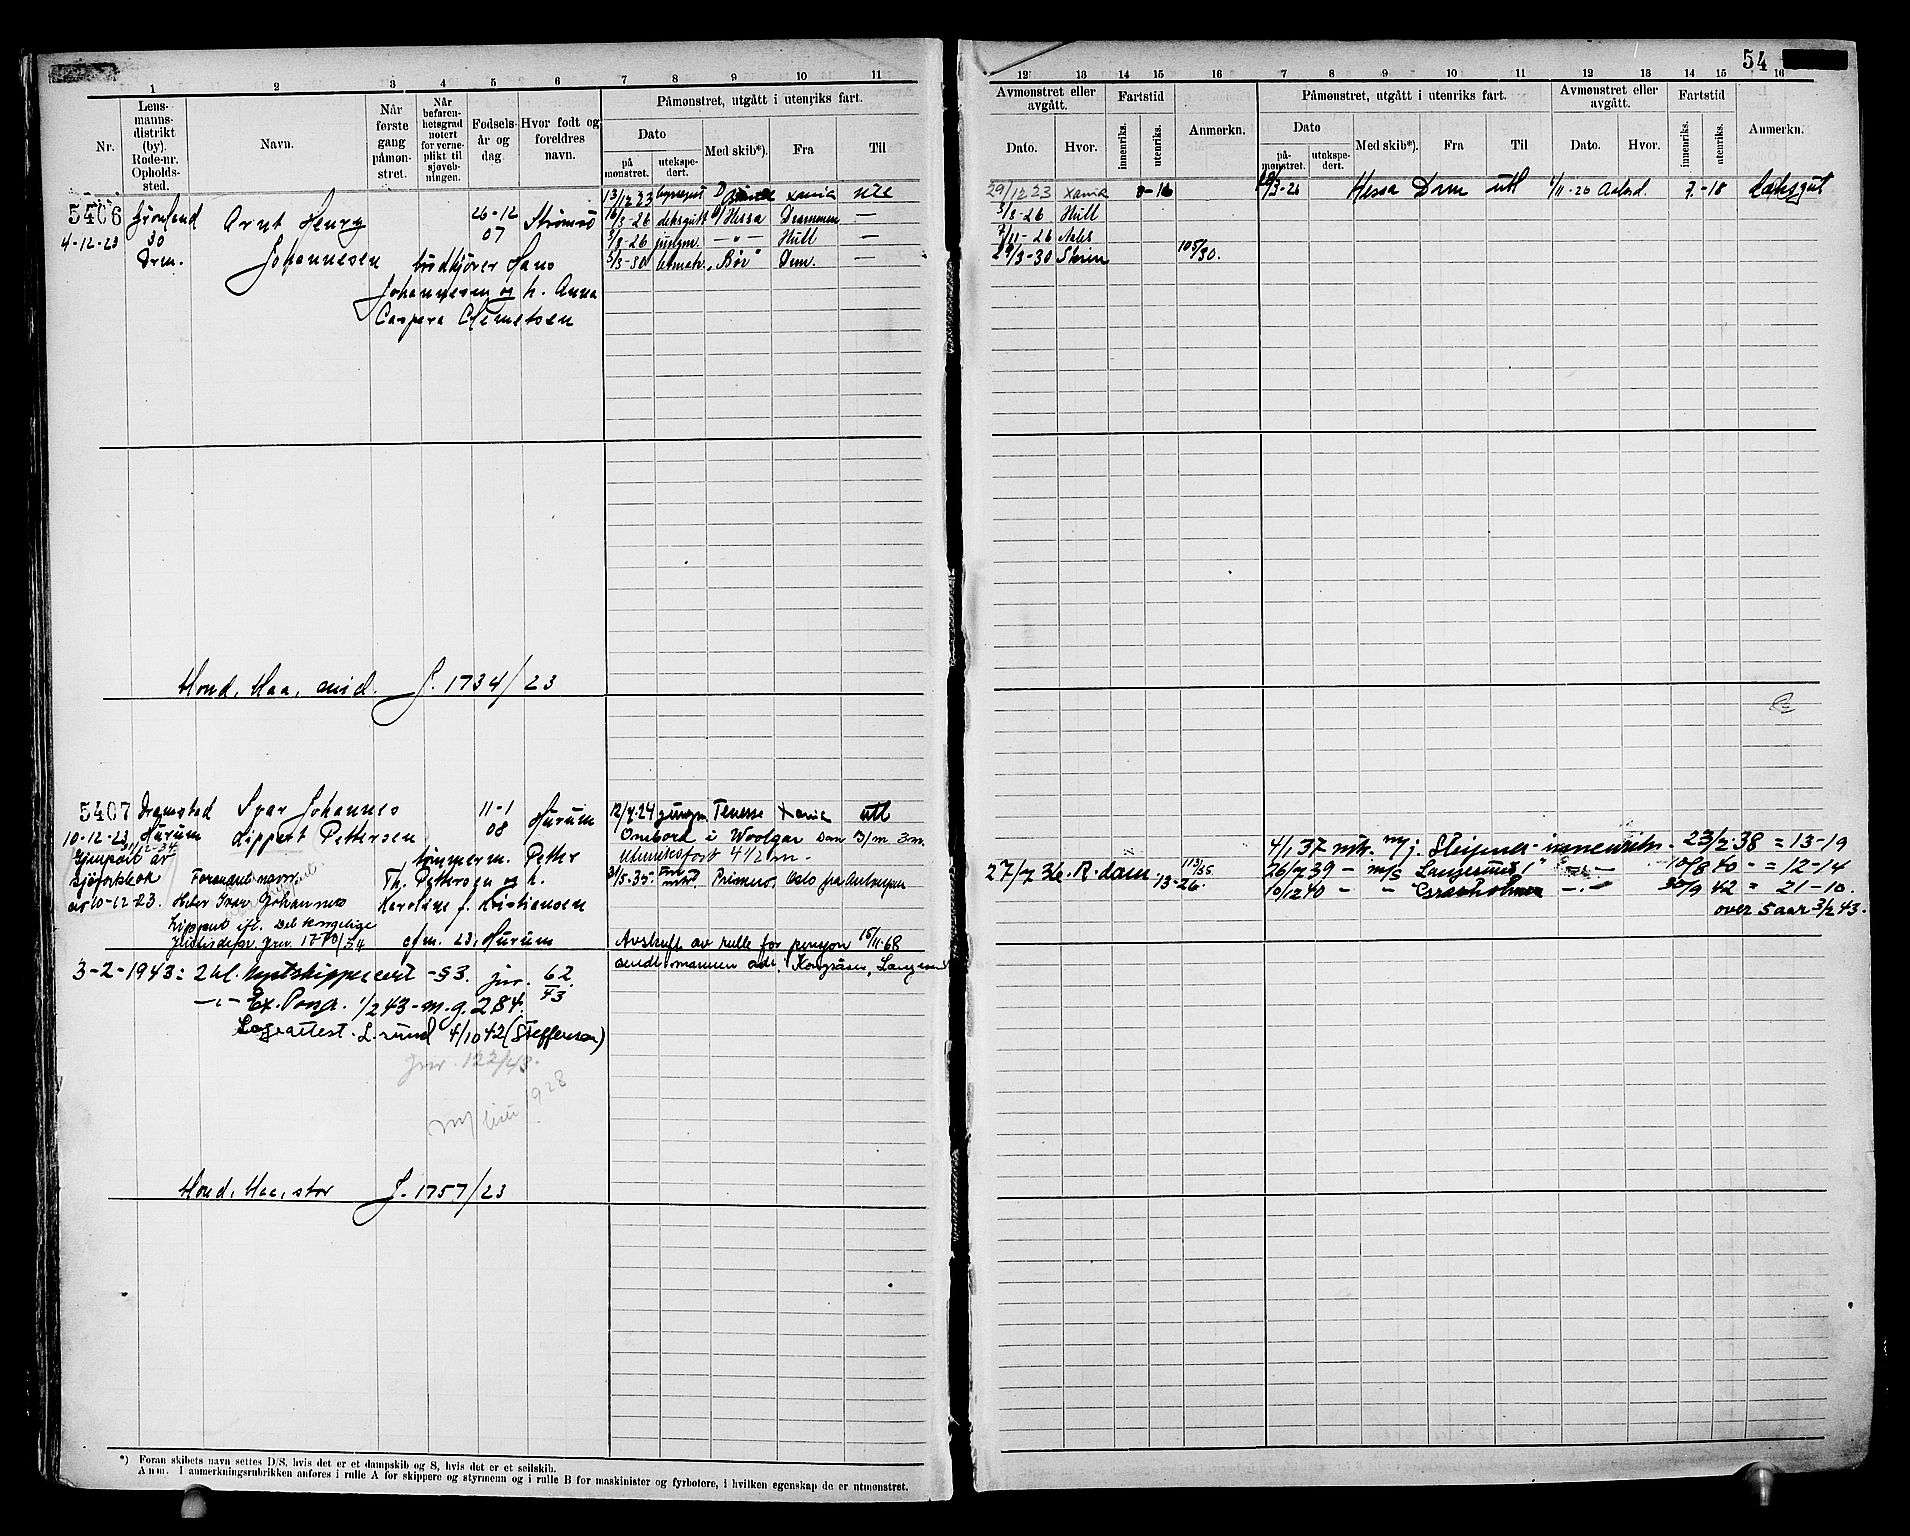 54
1 2 3 4 5 6 7 8 9 10 11
Nr.
Lens-
manns-
distrikt
(by).
Rode-nr.
Opholds-
sted.
Navn.
Når
første
gang
påmøn-
stret.
Når
befaren-
hetsgrad
notert
for verne-
plikt til
sjøveb-
ningen.
Fødsels-
år og
dag.
Hvor født og
foreldres
navn.
Påmønstret, utgått i utenriks fart.
Dato
på
mønstret.
utekspe-
dert.
Med skib*).
Fra
Til
5406 Grønland Arnt Henry 26-12 Strømsø
4-12-23 30 07
Drm. Johannesen budkjører Hans
Johannesen og h. Anna
Caspera
13/12 23 Xania utl
16/3-26 deksgutt Hessa Drammen —
5/8-26 jungm. — " — Hull —
5/3-30 letmatr. "Bør" Drm. —
Hond. Haa, mid. J. 1734/23
5407 Ivar Johannes 11-1 Hurum
10-12-23 Hurum Lippert Pettersen 08
11/12-34
tømmerm. Petter
sjøfartsbok Forandret navn Th. Pettersen og h.
av 10-12-23. Heter Ivar Johannes Karoline f. Kristiansen
Lippert ifl. Det kongelige
Justisdepr. 1770/34 cfm. 23, Hurum
12/7-24 jungm Tenesse Xania utl
Ombord i Woolgar
Utenriksfart 4 1/2 m -
31/5-35 Primero, Oslo fra Antwerpen
Avskrift av rulle for pensjon 15/11-68
sendt mannen adr. Kongsåsen, Langesund
3-2-1943: 2 kl. kystskippercert - §3. jnr. 62/43.
— " — Ex. Porsgr. 1/2 43 - m. g. 2.84.
Legeattest. L.sund 4/10 42 (Steffensen)
jnr. 122/43.
1928
Hond. Haa, stor J. 1757/23
*) Foran skibets navn settes D/S, hvis det er et dampskib og S, hvis det er et seilskib.
Anm. I anmerkningsrubrikken anføres i rulle A for skippere og styrmenn og i rulle B for maskinister og fyrbøtere, i hvilken egenskap de er utmønstret.
12 13 14 15 16 7 8 9 10 11 12 13 14 15 16
Avmønstret eller
avgått.
Dato.
Hvor.
Fartstid
innenriks.
utenriks.
Anmerkn.
Påmønstret, utgått i utenriks fart.
Dato
på-
mønstret.
utekspe-
dert.
Med skib*).
Fra
Til
Avmønstret eller
avgått.
Dato.
Hvor.
Fartstid
innenriks.
utenriks.
Anmerkn.
29/12 23 Xania 0-16 3-26 Hessa Drm utl 1/11-26 7-18 dæksgut
3/8-26 Hull
/11-26
29/3-30 Skien 105/30.
27/7 36. R.dam 13-26. 113/35.
4/1 37 Sleipner - innenriks - 23/2-38 = 13-19
26/7 39 — m/s Langesund — " — 10/8 40 — = 12-14
10/12 40 — " — — " — 30/9 42 = 21-10.
over 5 aar 3/2 43.